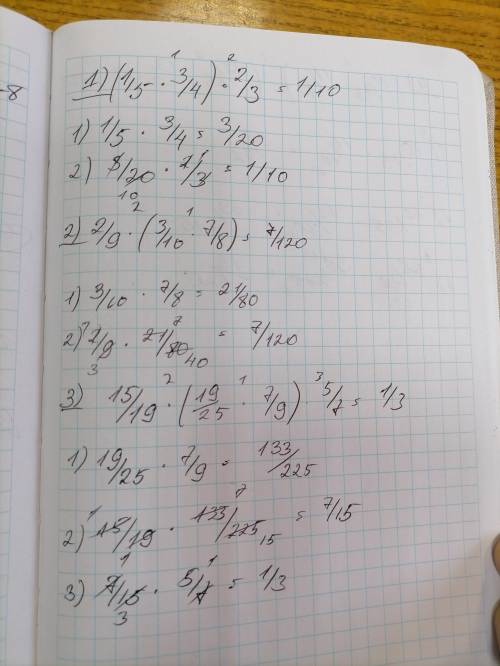 -8
1) (1/5 · 3/4) · 2/3 = 1/10
1) 1/5 · 3/4 = 3/20
2) 3/20 · 2/3 = 1/10
2) 2/9 · (3/10 · 7/8) = 7/120
1) 3/10 · 7/8 = 21/80
2) 2/9 · 21/80 = 7/120
3) 15/19 · (19/25 · 7/9) · 5/7 = 1/3
1) 19/25 · 7/9 = 133/225
2) 15/19 · 133/225 = 7/15
3) 7/15 · 5/7 = 1/3